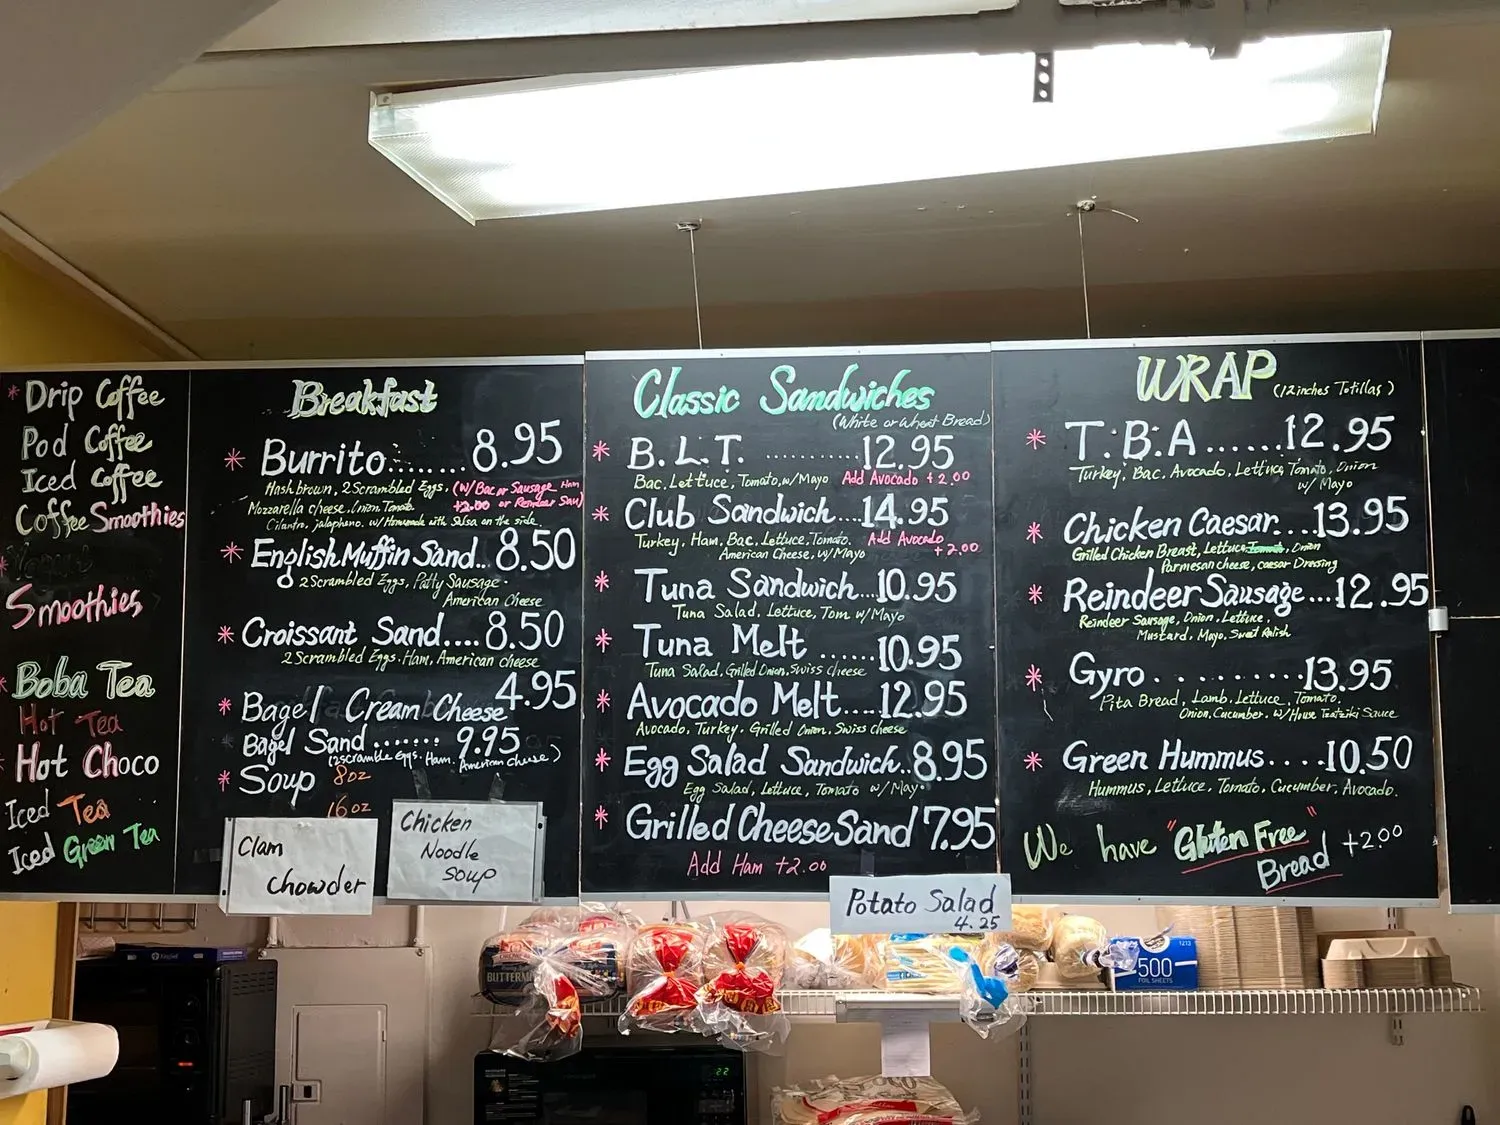 * Drip Coffee
Pod Coffee
Iced Coffee
Coffee Smoothies
Smoothies
Boba Tea
Hot Tea
Hot Choco
Iced Tea
Iced Green Tea
Breakfast
* Burrito........ 8.95
Hashbrown, 2 Scrambled Eggs, (w/ Bac or Sausage Ham
Mozzarella cheese, Onion Tomato +2.00 or Reindeer Sau)
Cilantro, jalapheno. w/ Homemade with Salsa on the side
* English Muffin Sand... 8.50
2 Scrambled Eggs, Patty Sausage.
American Cheese
* Croissant Sand.... 8.50
2 Scrambled Eggs. Ham, American cheese
* Bagel Cream Cheese 4.95
* Bagel Sand ....... 9.95
(2 scramble eggs. Ham. American cheese)
* Soup 8oz
16oz
Clam
Chowder
Chicken
Noodle
Soup
Classic Sandwiches
(White or Wheat Bread)
* B.L.T. .......... 12.95
Bac, Lettuce, Tomato, w/ Mayo Add Avocado +2.00
* Club Sandwich... 14.95
Turkey, Ham, Bac, Lettuce, Tomato. Add Avocado
American Cheese, w/ Mayo +2.00
* Tuna Sandwich.. 10.95
Tuna Salad, Lettuce, Tom w/ Mayo
* Tuna Melt ...... 10.95
Tuna Salad, Grilled Onion, Swiss cheese
* Avocado Melt.... 12.95
Avocado, Turkey, Grilled Onion, Swiss cheese
* Egg Salad Sandwich.. 8.95
Egg Salad, Lettuce, Tomato w/ Mayo
* Grilled Cheese Sand 7.95
Add Ham +2.00
Potato Salad
4.25
WRAP (12 inches Totillas)
* T.B.A....... 12.95
Turkey, Bac. Avocado, Lettuce, Tomato. Onion
w/ Mayo
* Chicken Caesar.... 13.95
Grilled Chicken Breast, Lettuce, Onion
Parmesan cheese, caesar Dressing
* Reindeer Sausage... 12.95
Reindeer Sausage, Onion, Lettuce,
Mustard, Mayo, Sweet Relish
* Gyro .......... 13.95
Pita Bread, Lamb, Lettuce, Tomato.
Onion, Cucumber. w/ House Tzatziki Sauce
* Green Hummus.... 10.50
Hummus, Lettuce, Tomato, Cucumber, Avocado.
We have "Gluten Free"
Bread +2.00
500
FOIL SHEETS